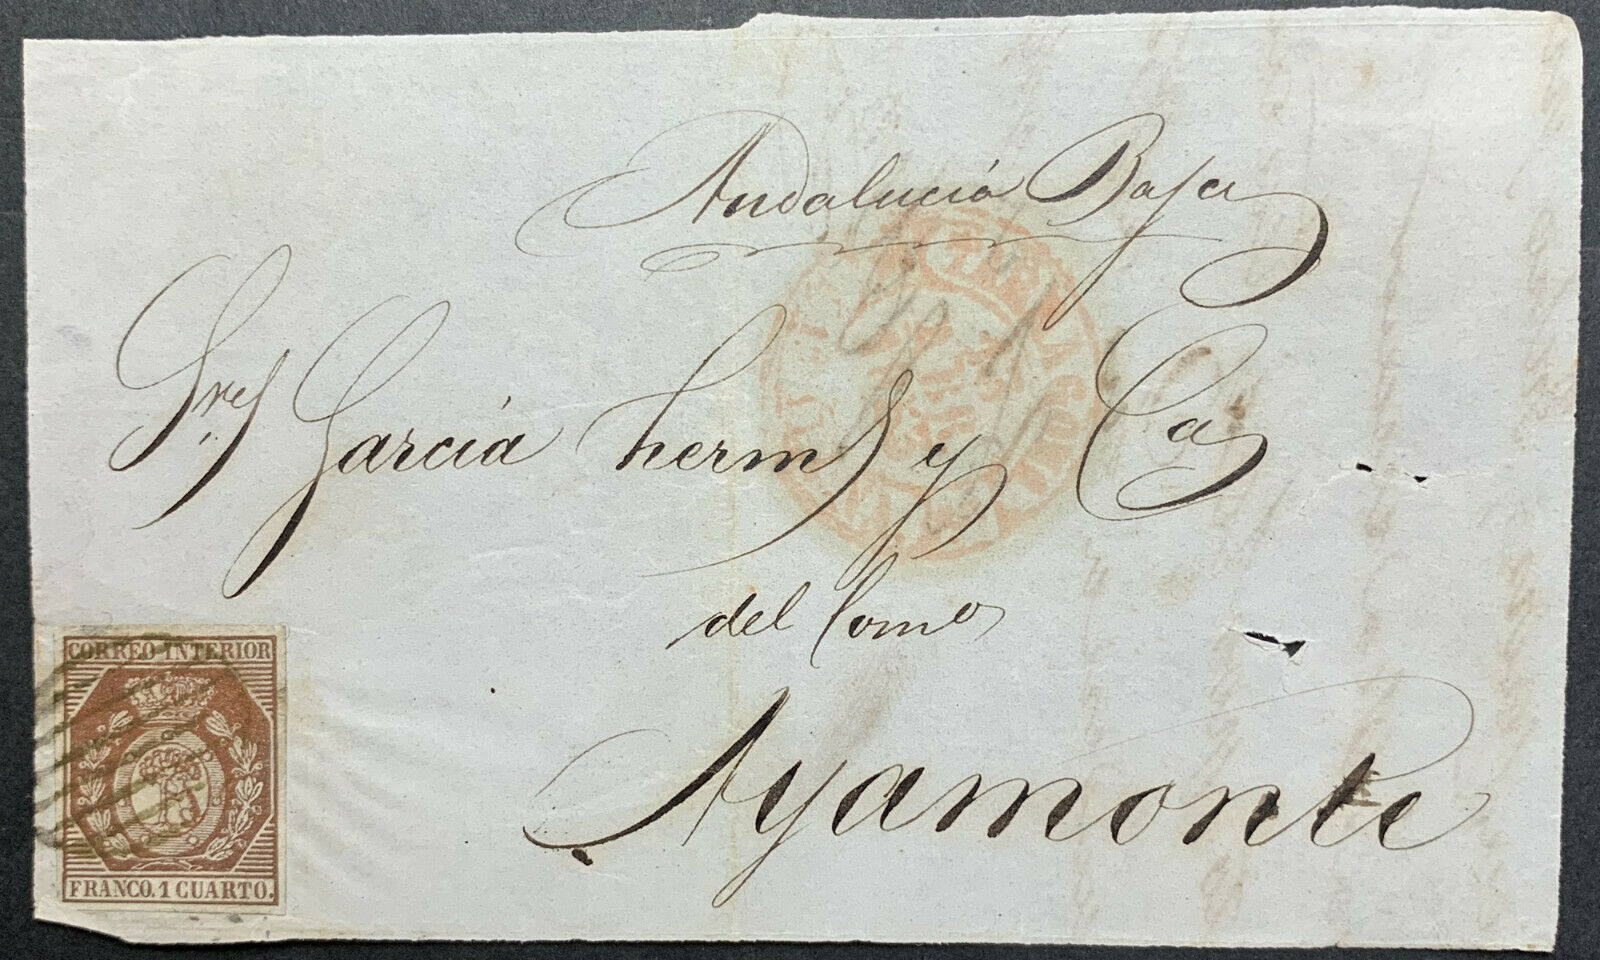 Andalucía Baja
Sres García herms y Ca
del Comº
Ayamonte
CORREO INTERIOR
FRANCO. 1 CUARTO.